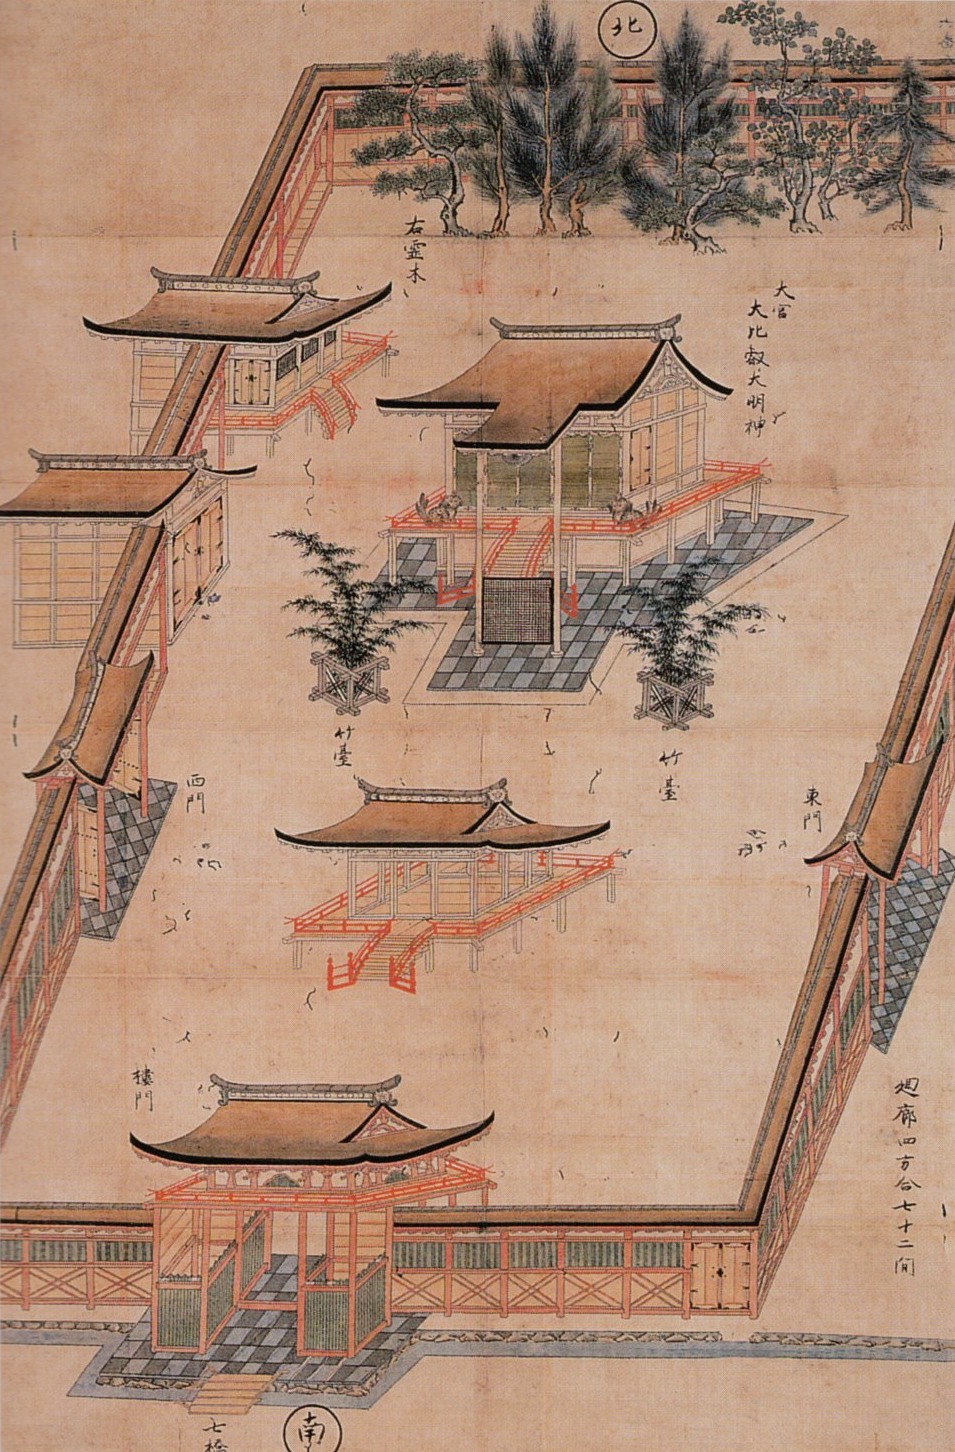 北
右霊木
大宮
大比叡大明神
竹臺
竹臺
西門
東門
樓門
廻廊四方合七十二間
七橋
南